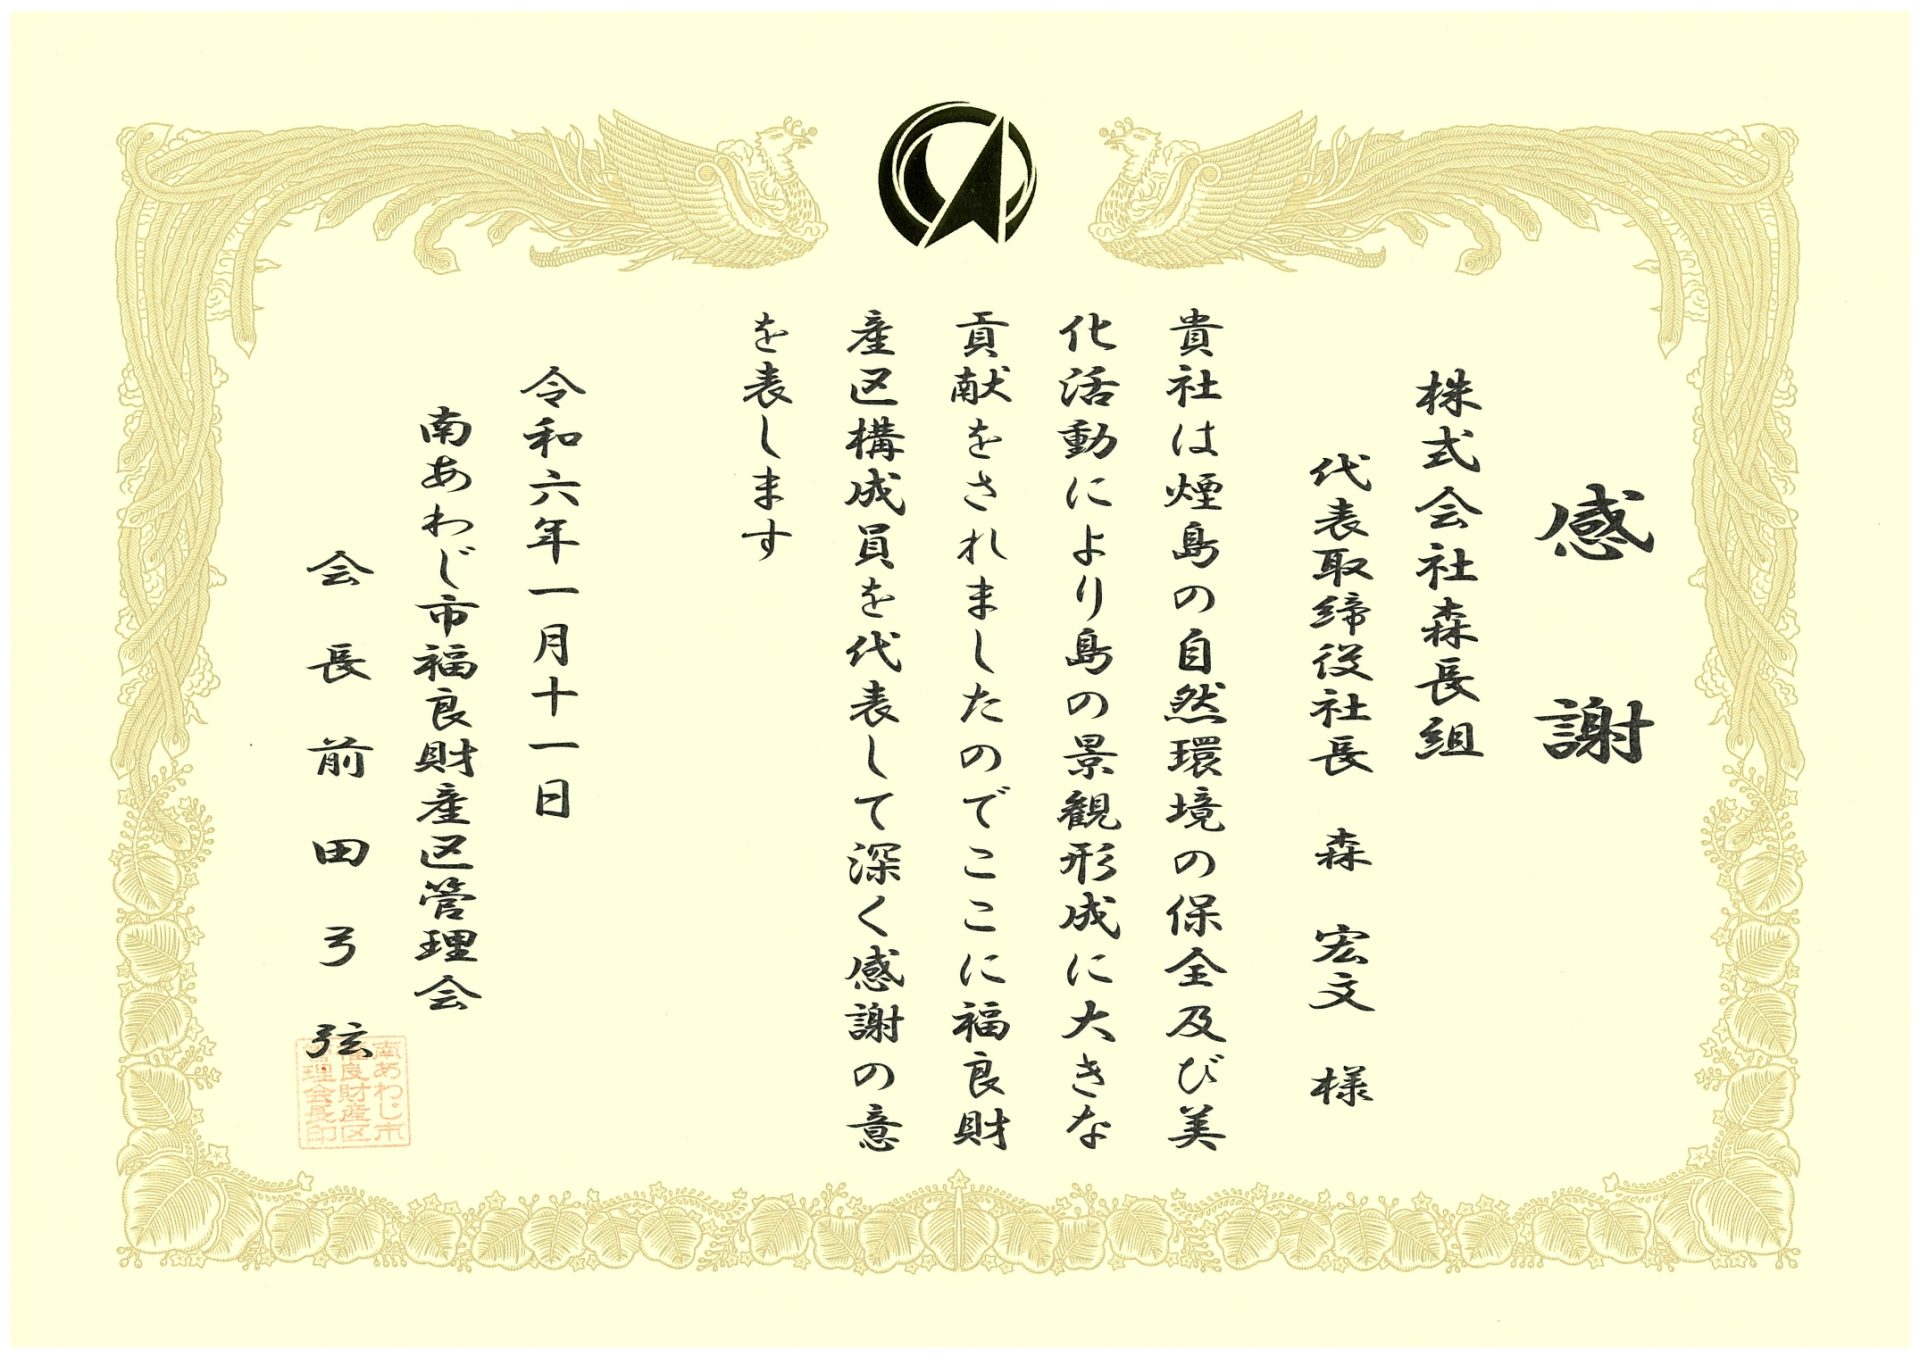 感謝
株式会社森長組
代表取締役社長 森 宏文 様
貴社は煙島の自然環境の保全及び美
化活動により島の景観形成に大きな
貢献をされましたのでここに福良財
産区構成員を代表して深く感謝の意
を表します
令和六年一月十一日
南あわじ市福良財産区管理会
会長前田弓弦
南あわじ市
福良財産区
管理会長印